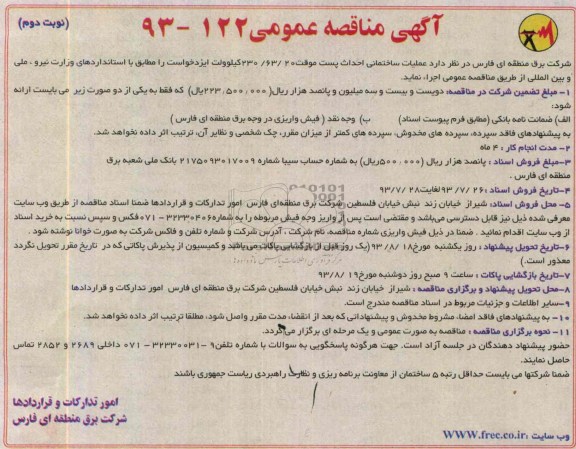 آگهی مناقصه عمومی ۱۲۲ -۹۳
(نوبت دوم)
شرکت برق منطقه ای فارس در نظر دارد عملیات ساختمانی احداث پست موقت ۲۳۰/۶۳/۲۰کیلوولت ایزدخواست را مطابق با استانداردهای وزارت نیرو ، ملی
و بین المللی از طریق مناقصه عمومی اجراء نماید.
۱- مبلغ تضمین شرکت در مناقصه: دویست و بیست و سه میلیون و پانصد هزار ریال( ۲۲۳/۵۰۰/۰۰۰ریال) که فقط به یکی از دو صورت زیر می بایست ارائه
شود:
الف) ضمانت نامه بانکی (مطابق فرم پیوست اسناد) ب) وجه نقد ( فیش واریزی در وجه برق منطقه ای فارس )
به پیشنهادهای فاقد سپرده، سپرده های مخدوش، سپرده های کمتر از میزان مقرر، چک شخصی و نظایر آن، ترتیب اثر داده نخواهد شد.
۲- مدت انجام کار : ۴ ماه
۳-مبلغ فروش اسناد : پانصد هزار ریال (۵۰۰/۰۰۰ریال) به شماره حساب سیبا شماره ۲۱۷۵۰۹۳۰۱۷۰۰۹ بانک ملی شعبه برق
منطقه ای فارس .
۴-تاریخ فروش اسناد :۲۶ /۹۳/۷ لغایت۲۸ /۹۳/۷
۵- محل فروش اسناد: شیراز خیابان زند نبش خیابان فلسطین شرکت برق منطقه‌ای فارس امور تدارکات و قراردادها ضمنا اسناد مناقصه از طریق وب سایت
معرفی شده ذیل نیز قابل دسترسی می‌باشد و مقتضی است پس از واریز وجه فیش مربوطه را به شماره۳۲۳۳۰۴۰۶-۰۷۱ فکس و سپس نسبت به خرید اسناد
از وب سایت اقدام نمائید . ضمنا در ذیل فیش واریزی شماره مناقصه، نام شرکت ، آدرس شرکت و شماره تلفن و فاکس شرکت به صورت خوانا نوشته شود .
۶-تاریخ تحویل پیشنهاد : روز یکشنبه مورخ۱۸ /۹۳/۸ (یک روز قبل از بازگشایی پاکات می‌باشد و کمیسیون از پذیرش پاکاتی که در تاریخ مقرر تحویل نگردد
معذور است.)
۷-تاریخ بازگشایی پاکات : ساعت ۹ صبح روز دوشنبه مورخ۱۹ /۹۳/۸
۸-محل تحویل پیشنهاد و برگزاری مناقصه : شیراز خیابان زند نبش خیابان فلسطین شرکت برق منطقه ای فارس امور تدارکات و قراردادها
۹-سایر اطلاعات و جزئیات مربوط در اسناد مناقصه مندرج است.
۱۰- به پیشنهادهای فاقد امضاء، مشروط مخدوش و پیشنهاداتی که بعد از انقضاء مدت مقرر واصل شود، مطلقا ترتیب اثر داده نخواهد شد.
۱۱- نحوه برگزاری مناقصه : مناقصه به صورت عمومی و یک مرحله ای برگزار می‌گردد.
حضور پیشنهاد دهندگان در جلسه آزاد است. جهت هرگونه پاسخگویی به سوالات با شماره تلفن۹ -۳۲۳۳۰۰۳۱-۰۷۱ داخلی ۲۶۸۹ و ۲۸۵۲ تماس
حاصل نمایند.
ضمنا شرکتها می بایست حداقل رتبه ۵ ساختمان از معاونت برنامه ریزی و نظارت راهبردی ریاست جمهوری باشند
امور تدارکات و قراردادها
شرکت برق منطقه ای فارس
وب سایت :WWW.frec.co.ir